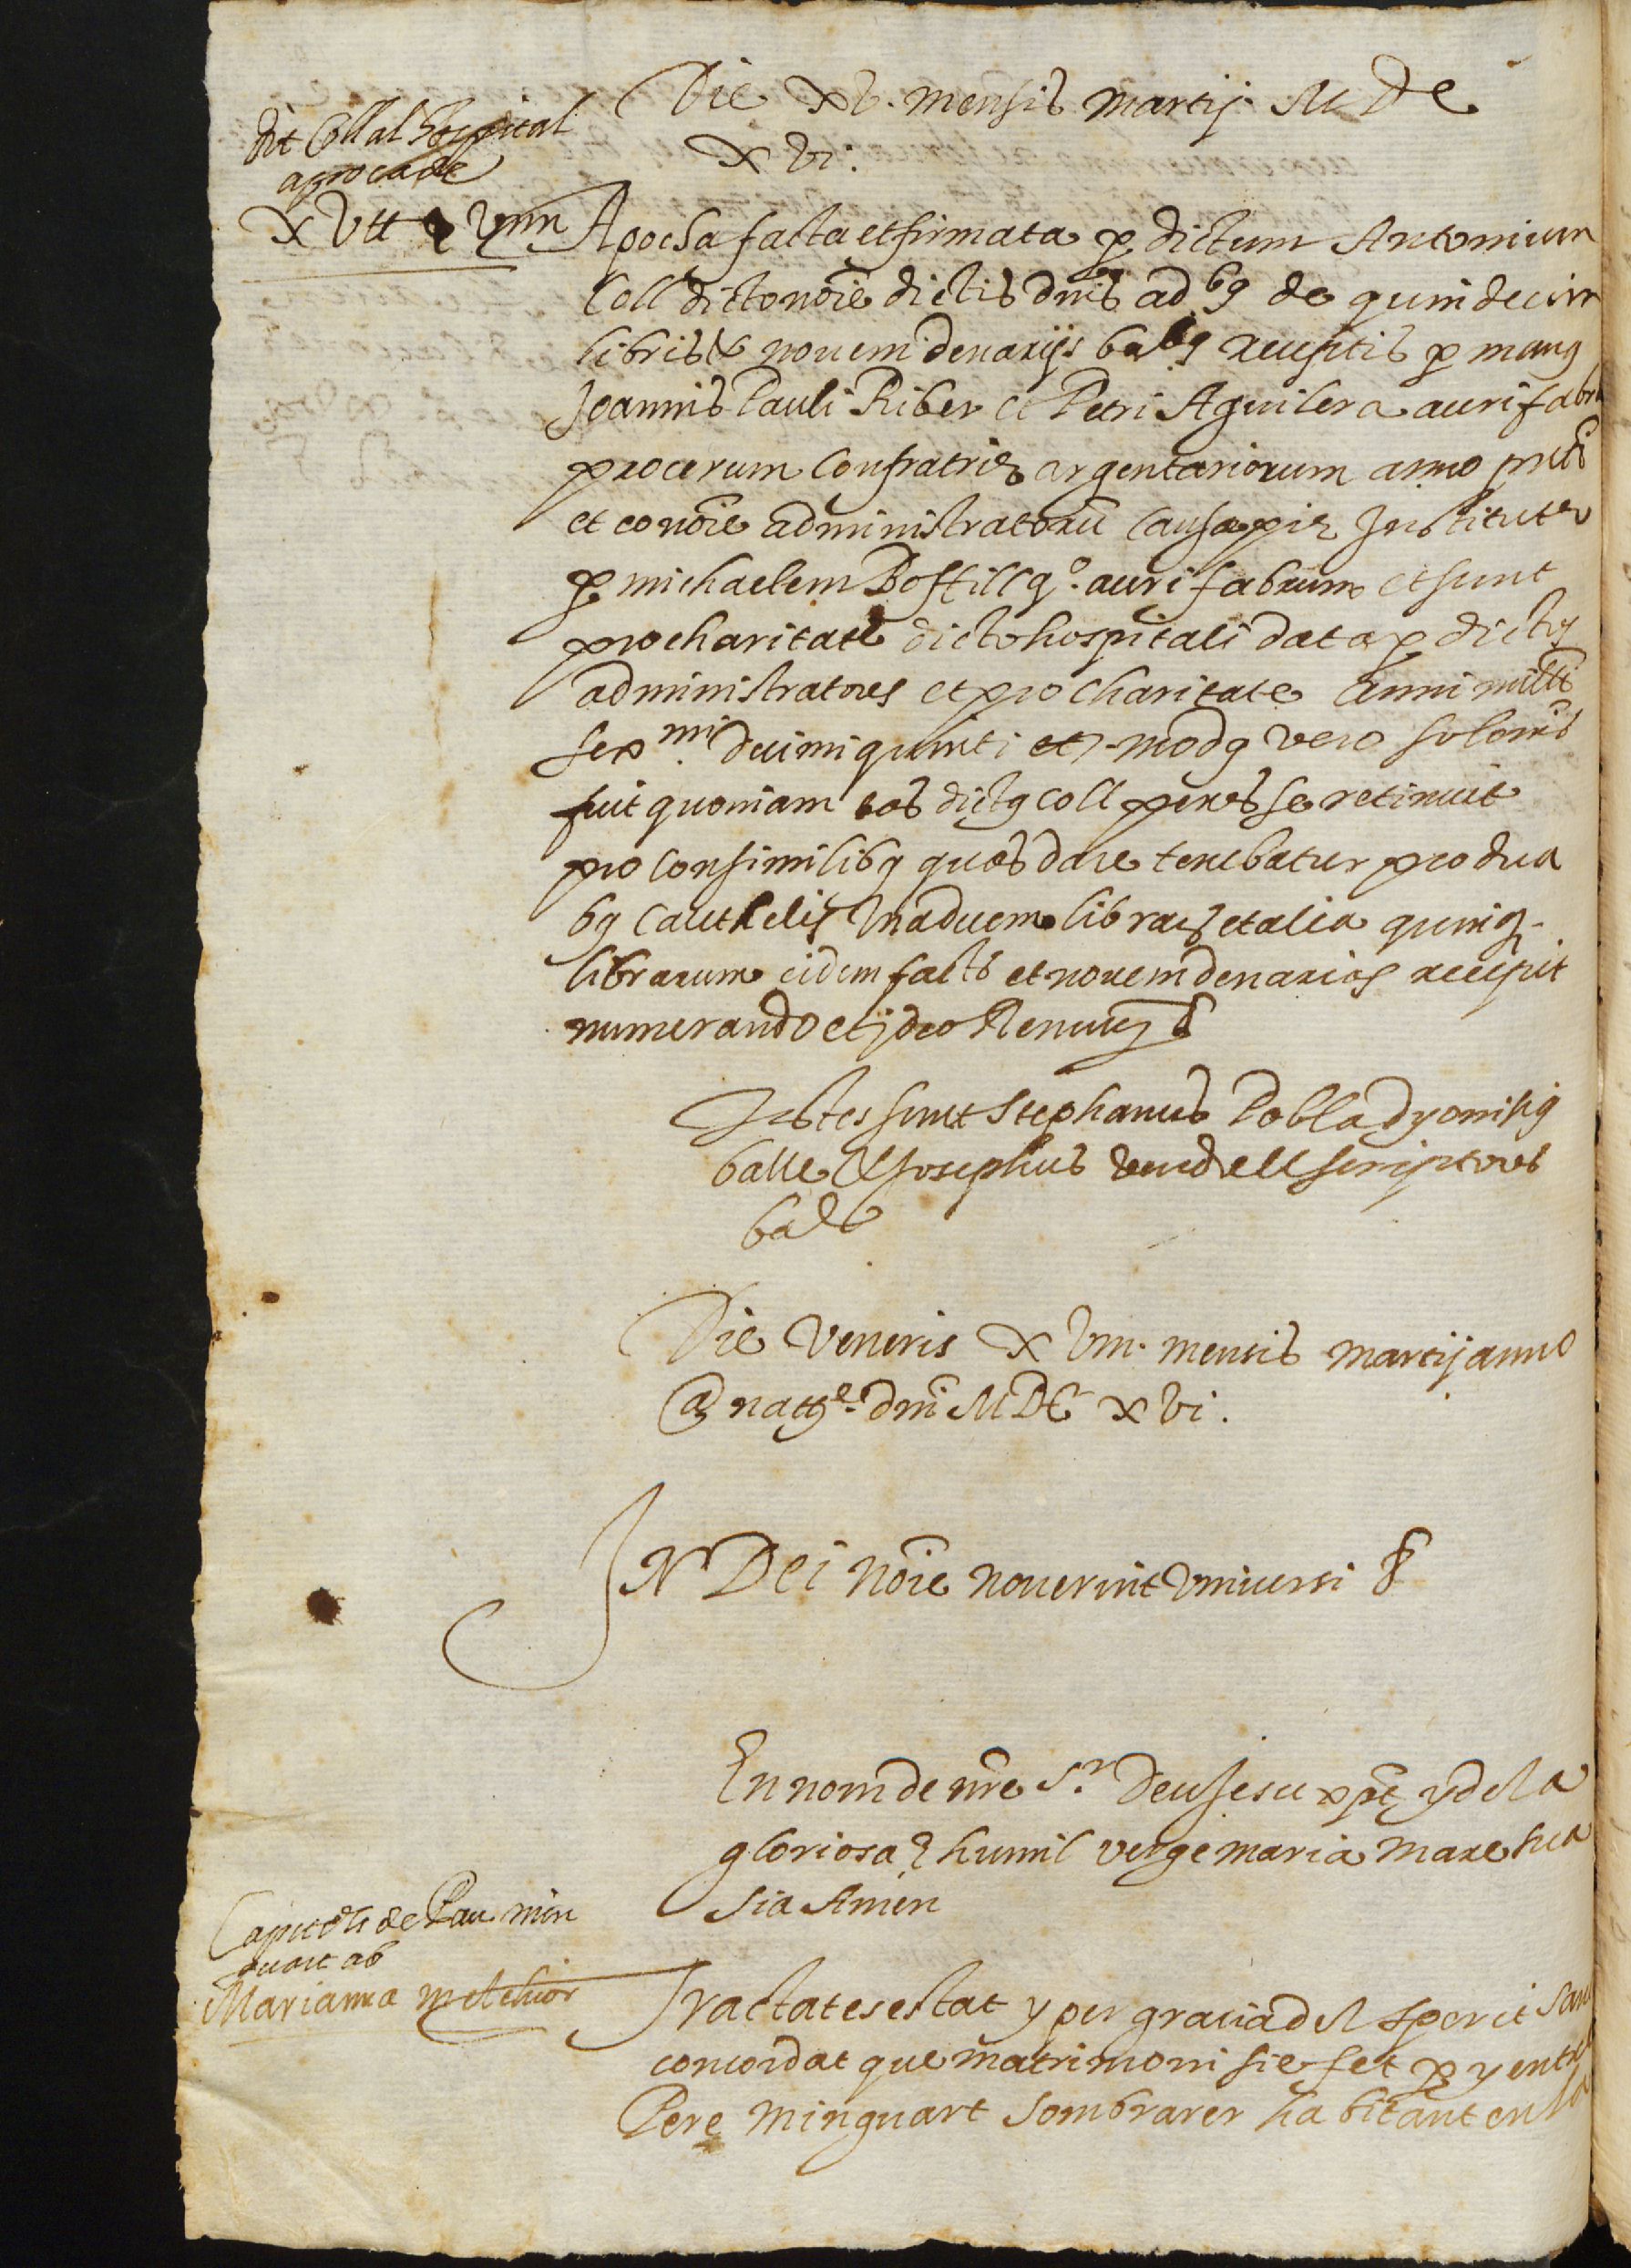 Die XV. mensis martij. M DC
XVI.
dit Coll al hospital
apoca de
XV ll e VIIII
Apocha facta et firmata p dictum Antonium
Coll dicto noie dictis dnis adbg de quindecim
libris & novem denarijs bal9 receptis p manus
Joannis Pauli Riber et Petri Aguilera aurifabri
procerum Confratrie argentariorum anno pnti
et eo noie administratorū Causa pie Institute
p michaelem Bofill q.º aurifabrum et sunt
pro charitate dicto hospitali data p dictos
administratores et pro charitate anni millmi
sexmi. decimi quinti et modg vero solonis
fuit quoniam eos dictg Coll penes se retinuit
pro Consimilibg quos dare tenebatur pro dua
bg Cauthelis una duem librarū et alia quinq.
librarum eidem factis et novem denarios recepit
numerando et ideo Renung &
Testes sunt Stephanus Pobla dyonisig
balle & Josephus vendrell scriptores
balb
Die Veneris XVIII. mensis martij anno
@ natte. dni MDC XVI.
IN DEI noie noverint universi &
En nom de nre Sr. Deu Jesu xpt y de la
gloriosa e humil verge maria mare sua
sia Amen
Capitols de Pau min
guart ab
Marianna melchior
Tractat es estat y per gracia del sperit san
concordat que matrimoni sie fet p y entre
Pere minguart Sombrarer habitant en la